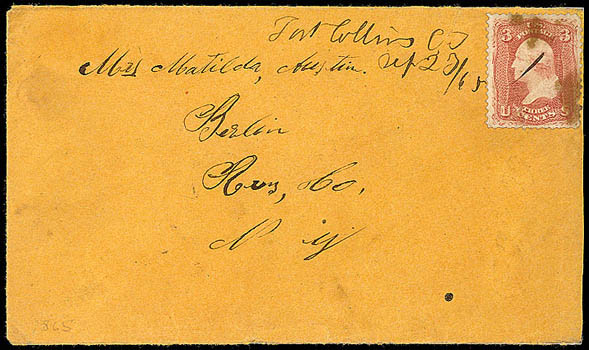 Fort Collins C T
Mrs Matilda, Austin. 23/65
Berlin
Co,
N Y
3 3
POSTAGE
U THREE CENTS
1865